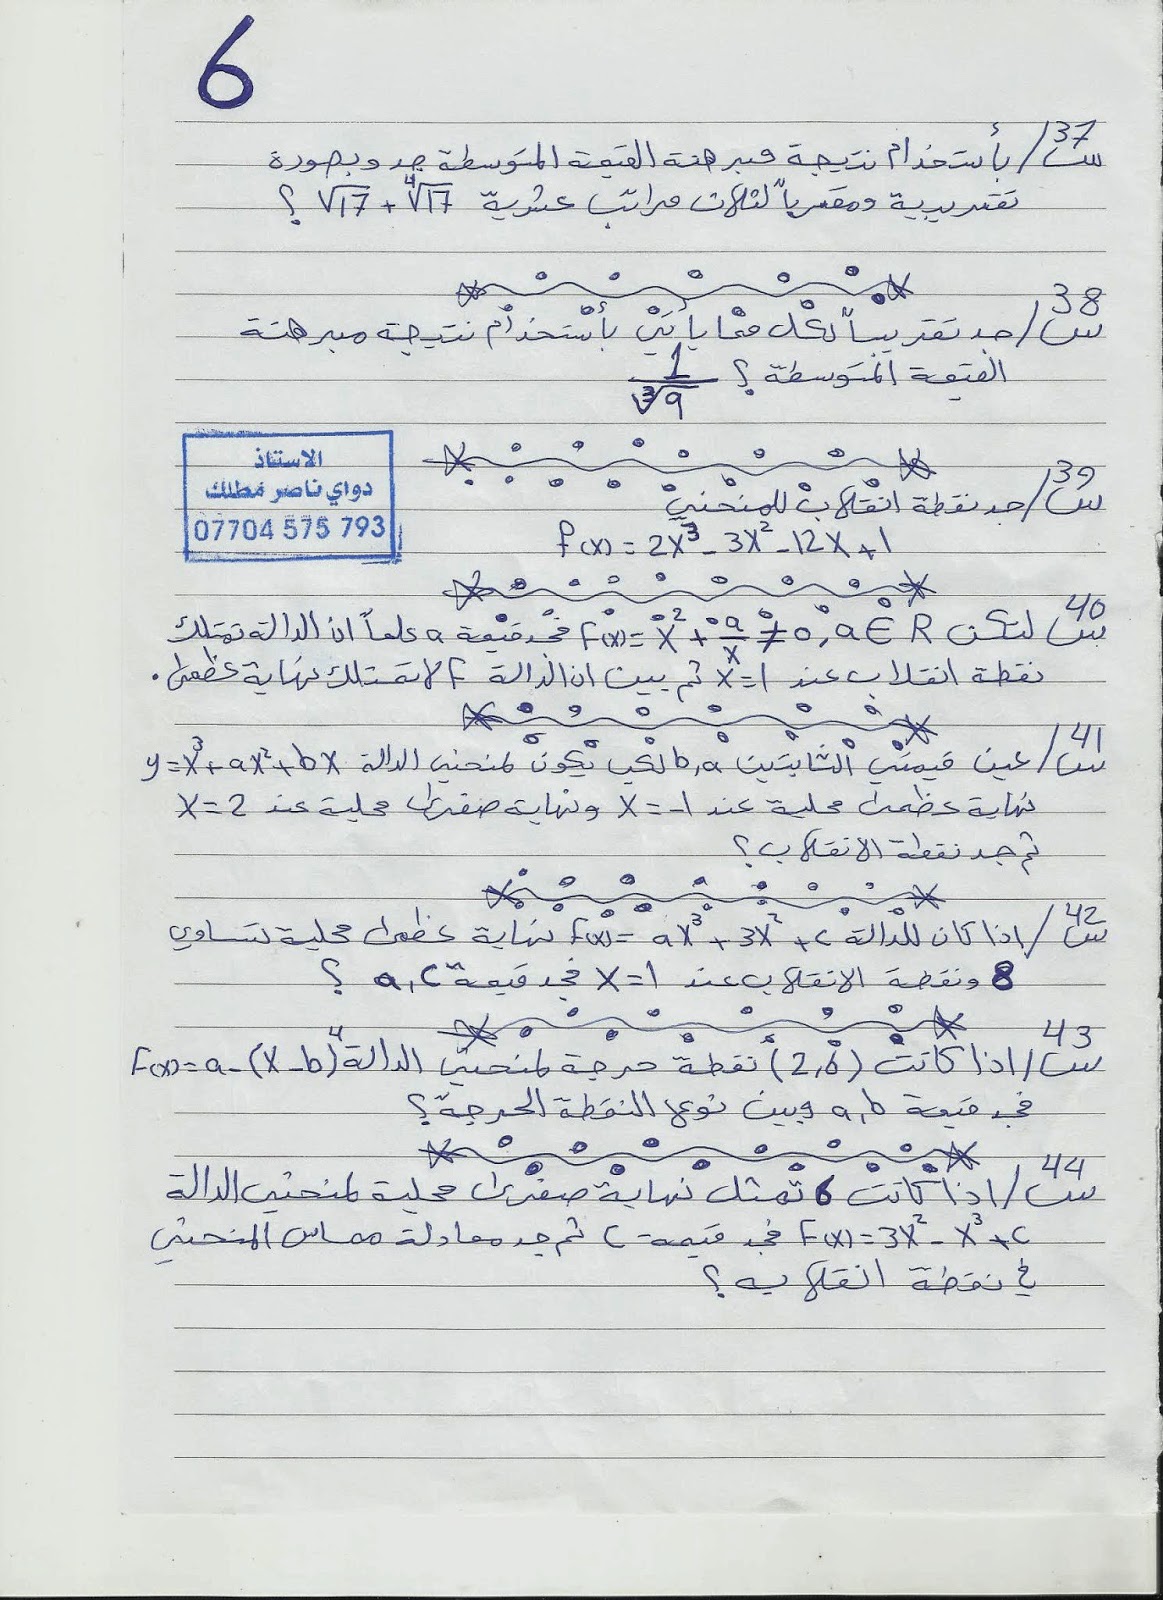 6
س37/ بأستخدام نتيجة مبرهنة القيمة المتوسطة جد وبصورة
تقريبية ومقرباً لثلاث مراتب عشرية √17 + ∜17 ؟
س38/ جد تقريباً لكل مما يأتي بأستخدام نتيجة مبرهنة
القيمة المتوسطة ؟ 1/∛9
الاستاذ
دواي ناصر مطلك
07704 575 793
س39/ جد نقطة انقلاب للمنحني
f(x) = 2x³ - 3x² - 12x + 1
س40/ لتكن f(x) = x² + a/x ≠ 0, a ∈ R فجد قيمة a علماً ان الدالة تمتلك
نقطة انقلاب عند x=1 ثم بين ان الدالة f لا تمتلك نهاية عظمى .
س41/ عين قيمتي الثابتين a, b لكي يكون لمنحني الدالة y = x³ + ax² + bx
نهاية عظمى محلية عند x = -1 ونهاية صغرى محلية عند x = 2
ثم جد نقطة الانقلاب ؟
س42/ اذا كان للدالة f(x) = ax³ + 3x² + c نهاية عظمى محلية تساوي
8 ونقطة الانقلاب عند x = 1 فجد قيمة a, c ؟
س43/ اذا كانت (2,6) نقطة حرجة لمنحني الدالة f(x) = a - (x - b)⁴
فجد قيمة a, b وبين نوع النقطة الحرجة ؟
س44/ اذا كانت 6 تمثل نهاية صغرى محلية لمنحني الدالة
f(x) = 3x² - x³ + c فجد قيمة c ثم جد معادلة مماس المنحني
في نقطة انقلابه ؟